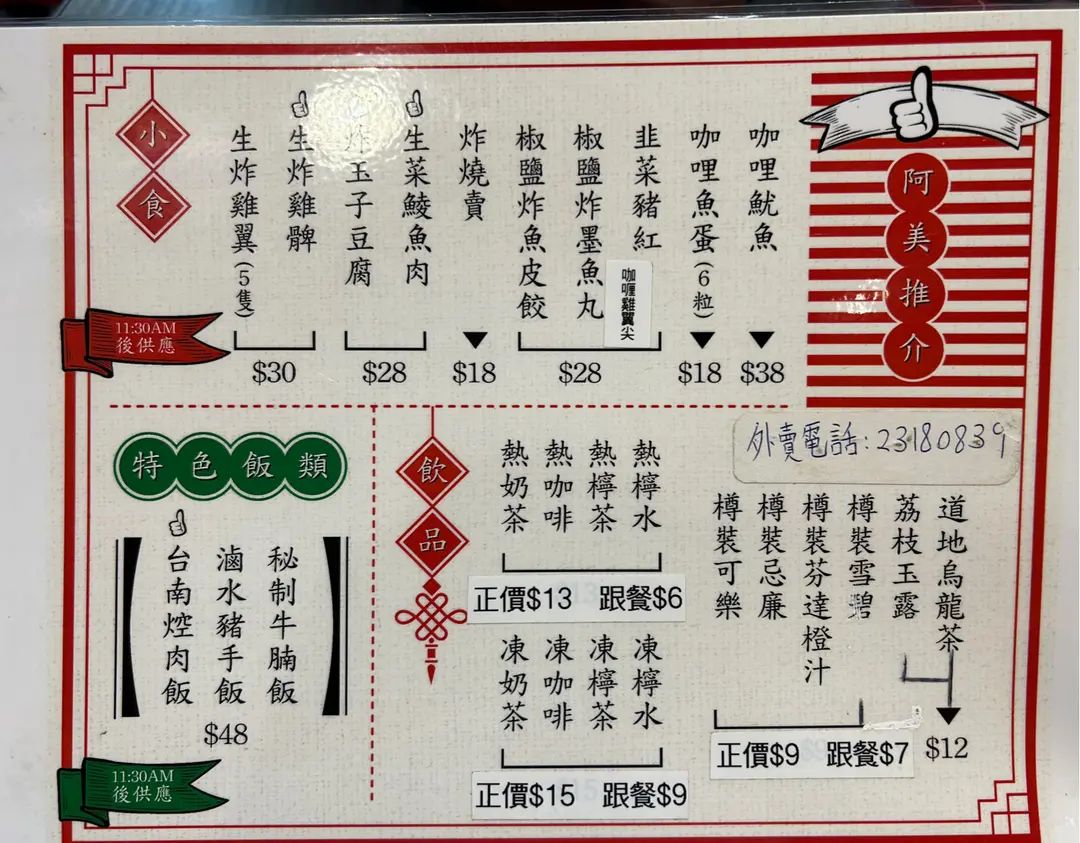 阿美推介
咖哩魷魚
$38
咖哩魚蛋(6粒)
$18
韭菜豬紅
咖喱雞翼尖
椒鹽炸墨魚丸
椒鹽炸魚皮餃
$28
炸燒賣
$18
生菜鯪魚肉
炸玉子豆腐
$28
生炸雞髀
生炸雞翼(5隻)
$30
小食
11:30AM
後供應
特色飯類
秘制牛腩飯
滷水豬手飯
台南焢肉飯
$48
11:30AM
後供應
飲品
熱檸水
熱檸茶
熱咖啡
熱奶茶
正價$13 跟餐$6
凍檸水
凍檸茶
凍咖啡
凍奶茶
正價$15 跟餐$9
外賣電話:23180839
道地烏龍茶
荔枝玉露
$12
樽裝雪碧
樽裝芬達橙汁
樽裝忌廉
樽裝可樂
正價$9 跟餐$7